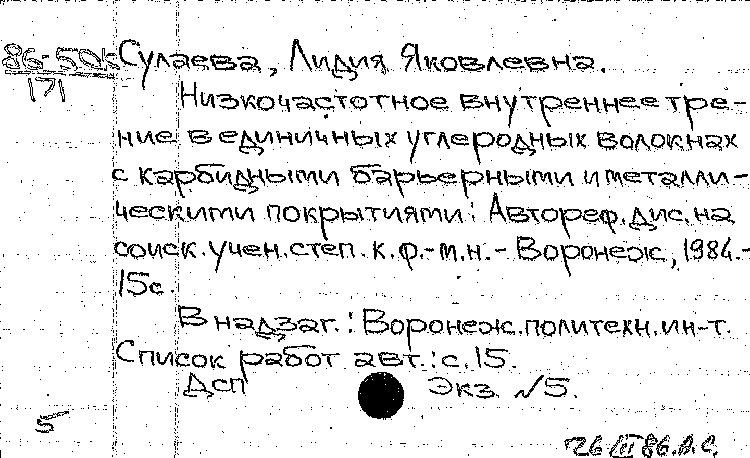 86-50к Сулаева, Лидия Яковлевна.
171
Низкочастотное внутреннее тре-
ние в единичных углеродных волокнах
с карбидными барьерными и металли-
ческими покрытиями: Автореф. дис. на
соиск. учен. степ. к. ф.-м. н. - Воронеж, 1984.-
15с.
В надзаг.: Воронеж. политехн. ин-т.
Список работ авт.: с. 15.
Дсп Экз. №5.
5
26/III 86.